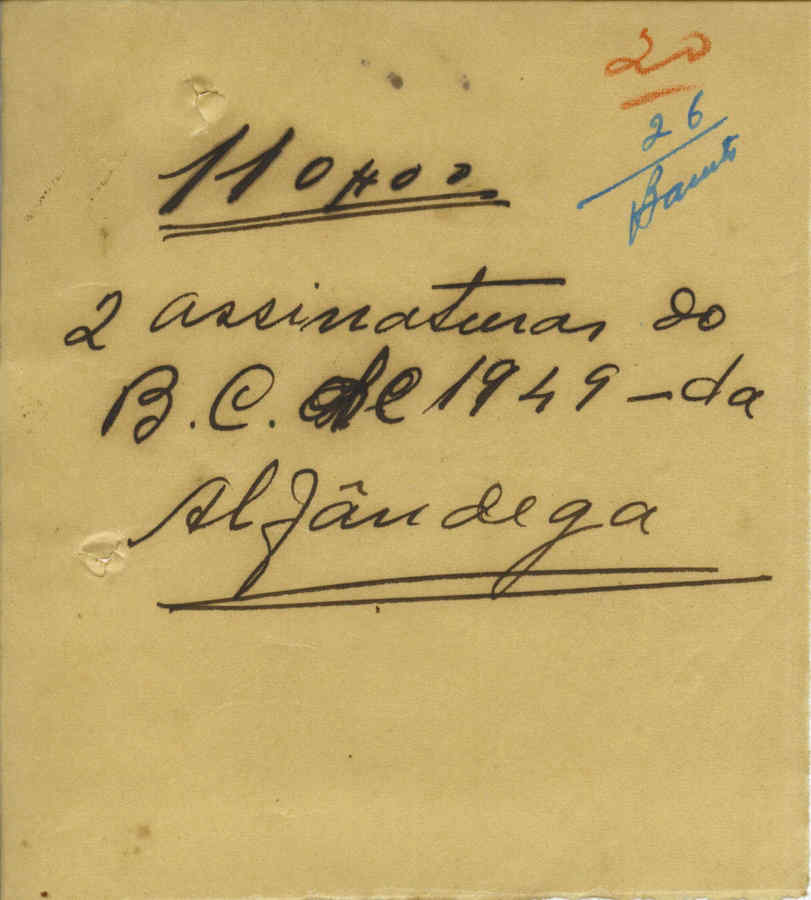 20
26
110$00
2 assinaturas do
B. C. de 1949 - da
Alfândega